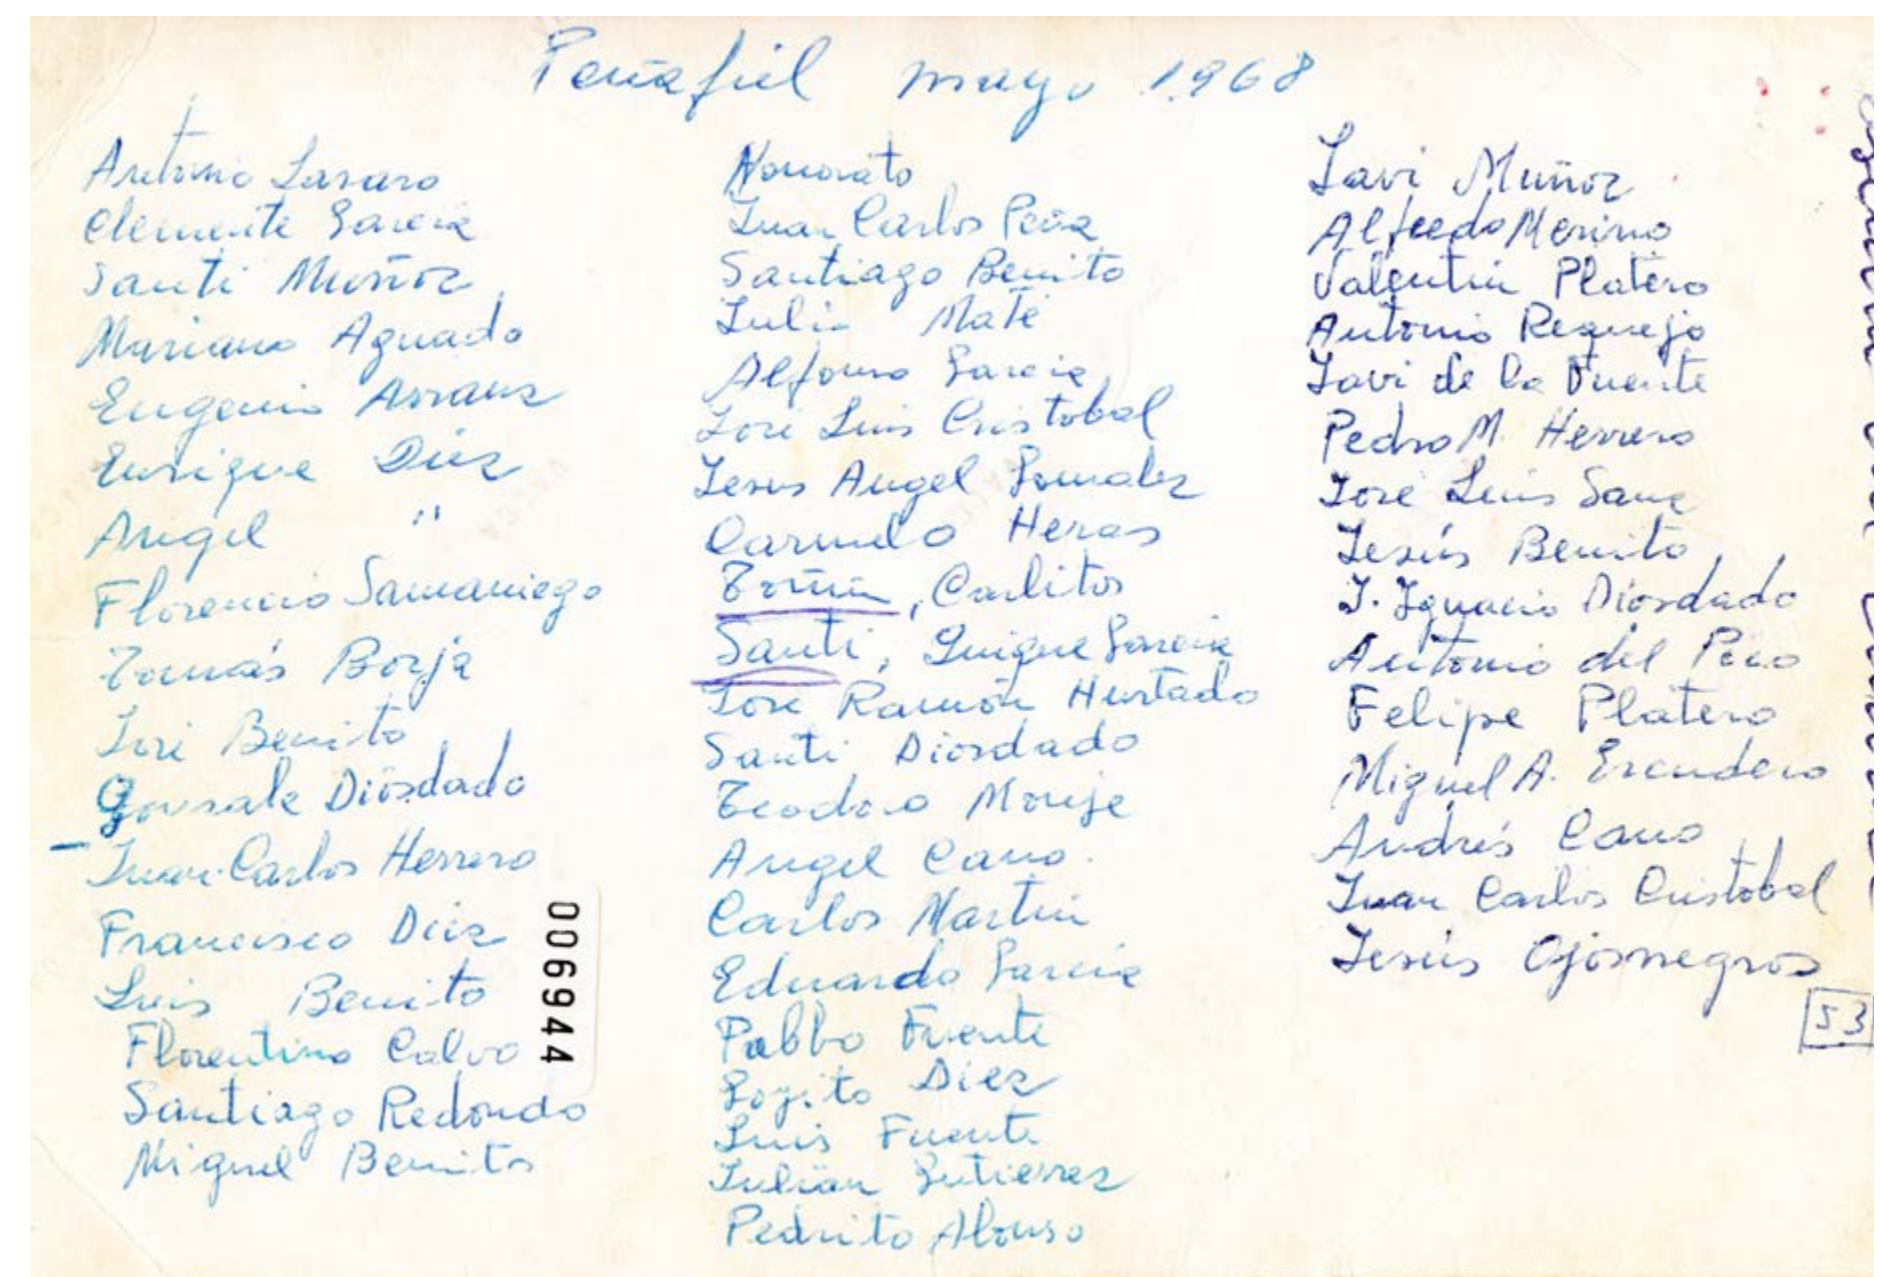 Peñafiel mayo 1968
Antonio Lasaro
Clemente Garcia
Santi Muñoz
Mariano Aguado
Eugenio Arranz
Enrique Diez
Angel "
Florencio Samaniego
Tomás Borja
José Benito
Gonzalo Diosdado
Juan-Carlos Herrero
Francisco Diez
Luis Benito
Florentino Calvo
Santiago Redondo
Miguel Benito
006944
Honorato
Juan Carlos Peña
Santiago Benito
Julio Maté
Alfonso Garcia
José Luis Cristobal
Jesus Angel Gonzalez
Carmelo Heras
Toñin, Carlitos
Santi, Quique Garcia
José Ramón Hurtado
Santi Diosdado
Teodoro Monje
Angel Cano.
Carlos Martin
Eduardo Garcia
Pablo Fuente
Goyito Diez
Luis Fuente
Julián Gutierrez
Pedrito Alonso
Javi Muñoz
Alfredo Merino
Valentin Platero
Antonio Requejo
Javi de la Fuente
Pedro M. Herrero
José Luis Sanz
Jesús Benito
J. Ignacio Diosdado
Antonio del Pozo
Felipe Platero
Miguel A. Escudero
Andrés Cano
Juan Carlos Cristobal
Jesús Ojosnegros
53